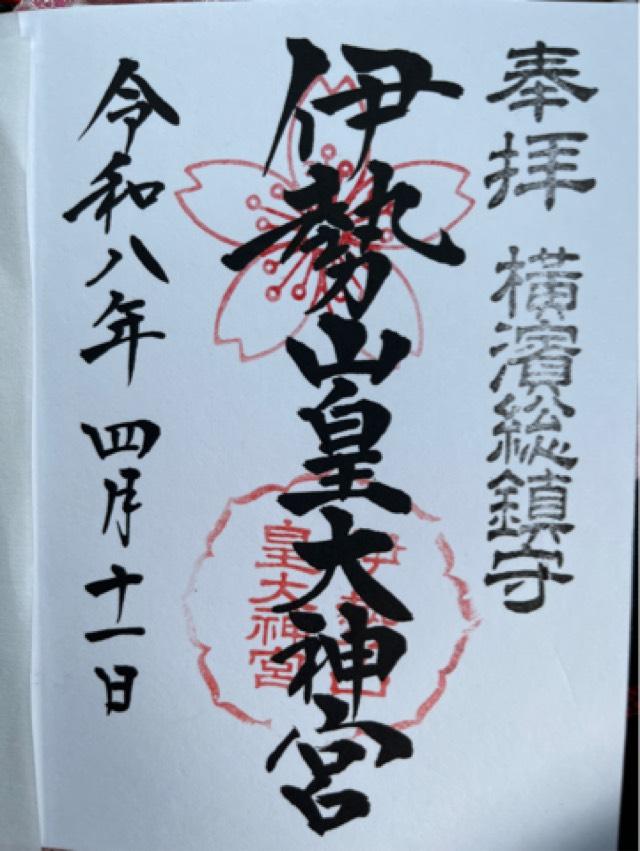 奉拝 横濱総鎮守
伊勢山皇大神宮
伊勢山
皇大神宮
令和八年 四月十一日